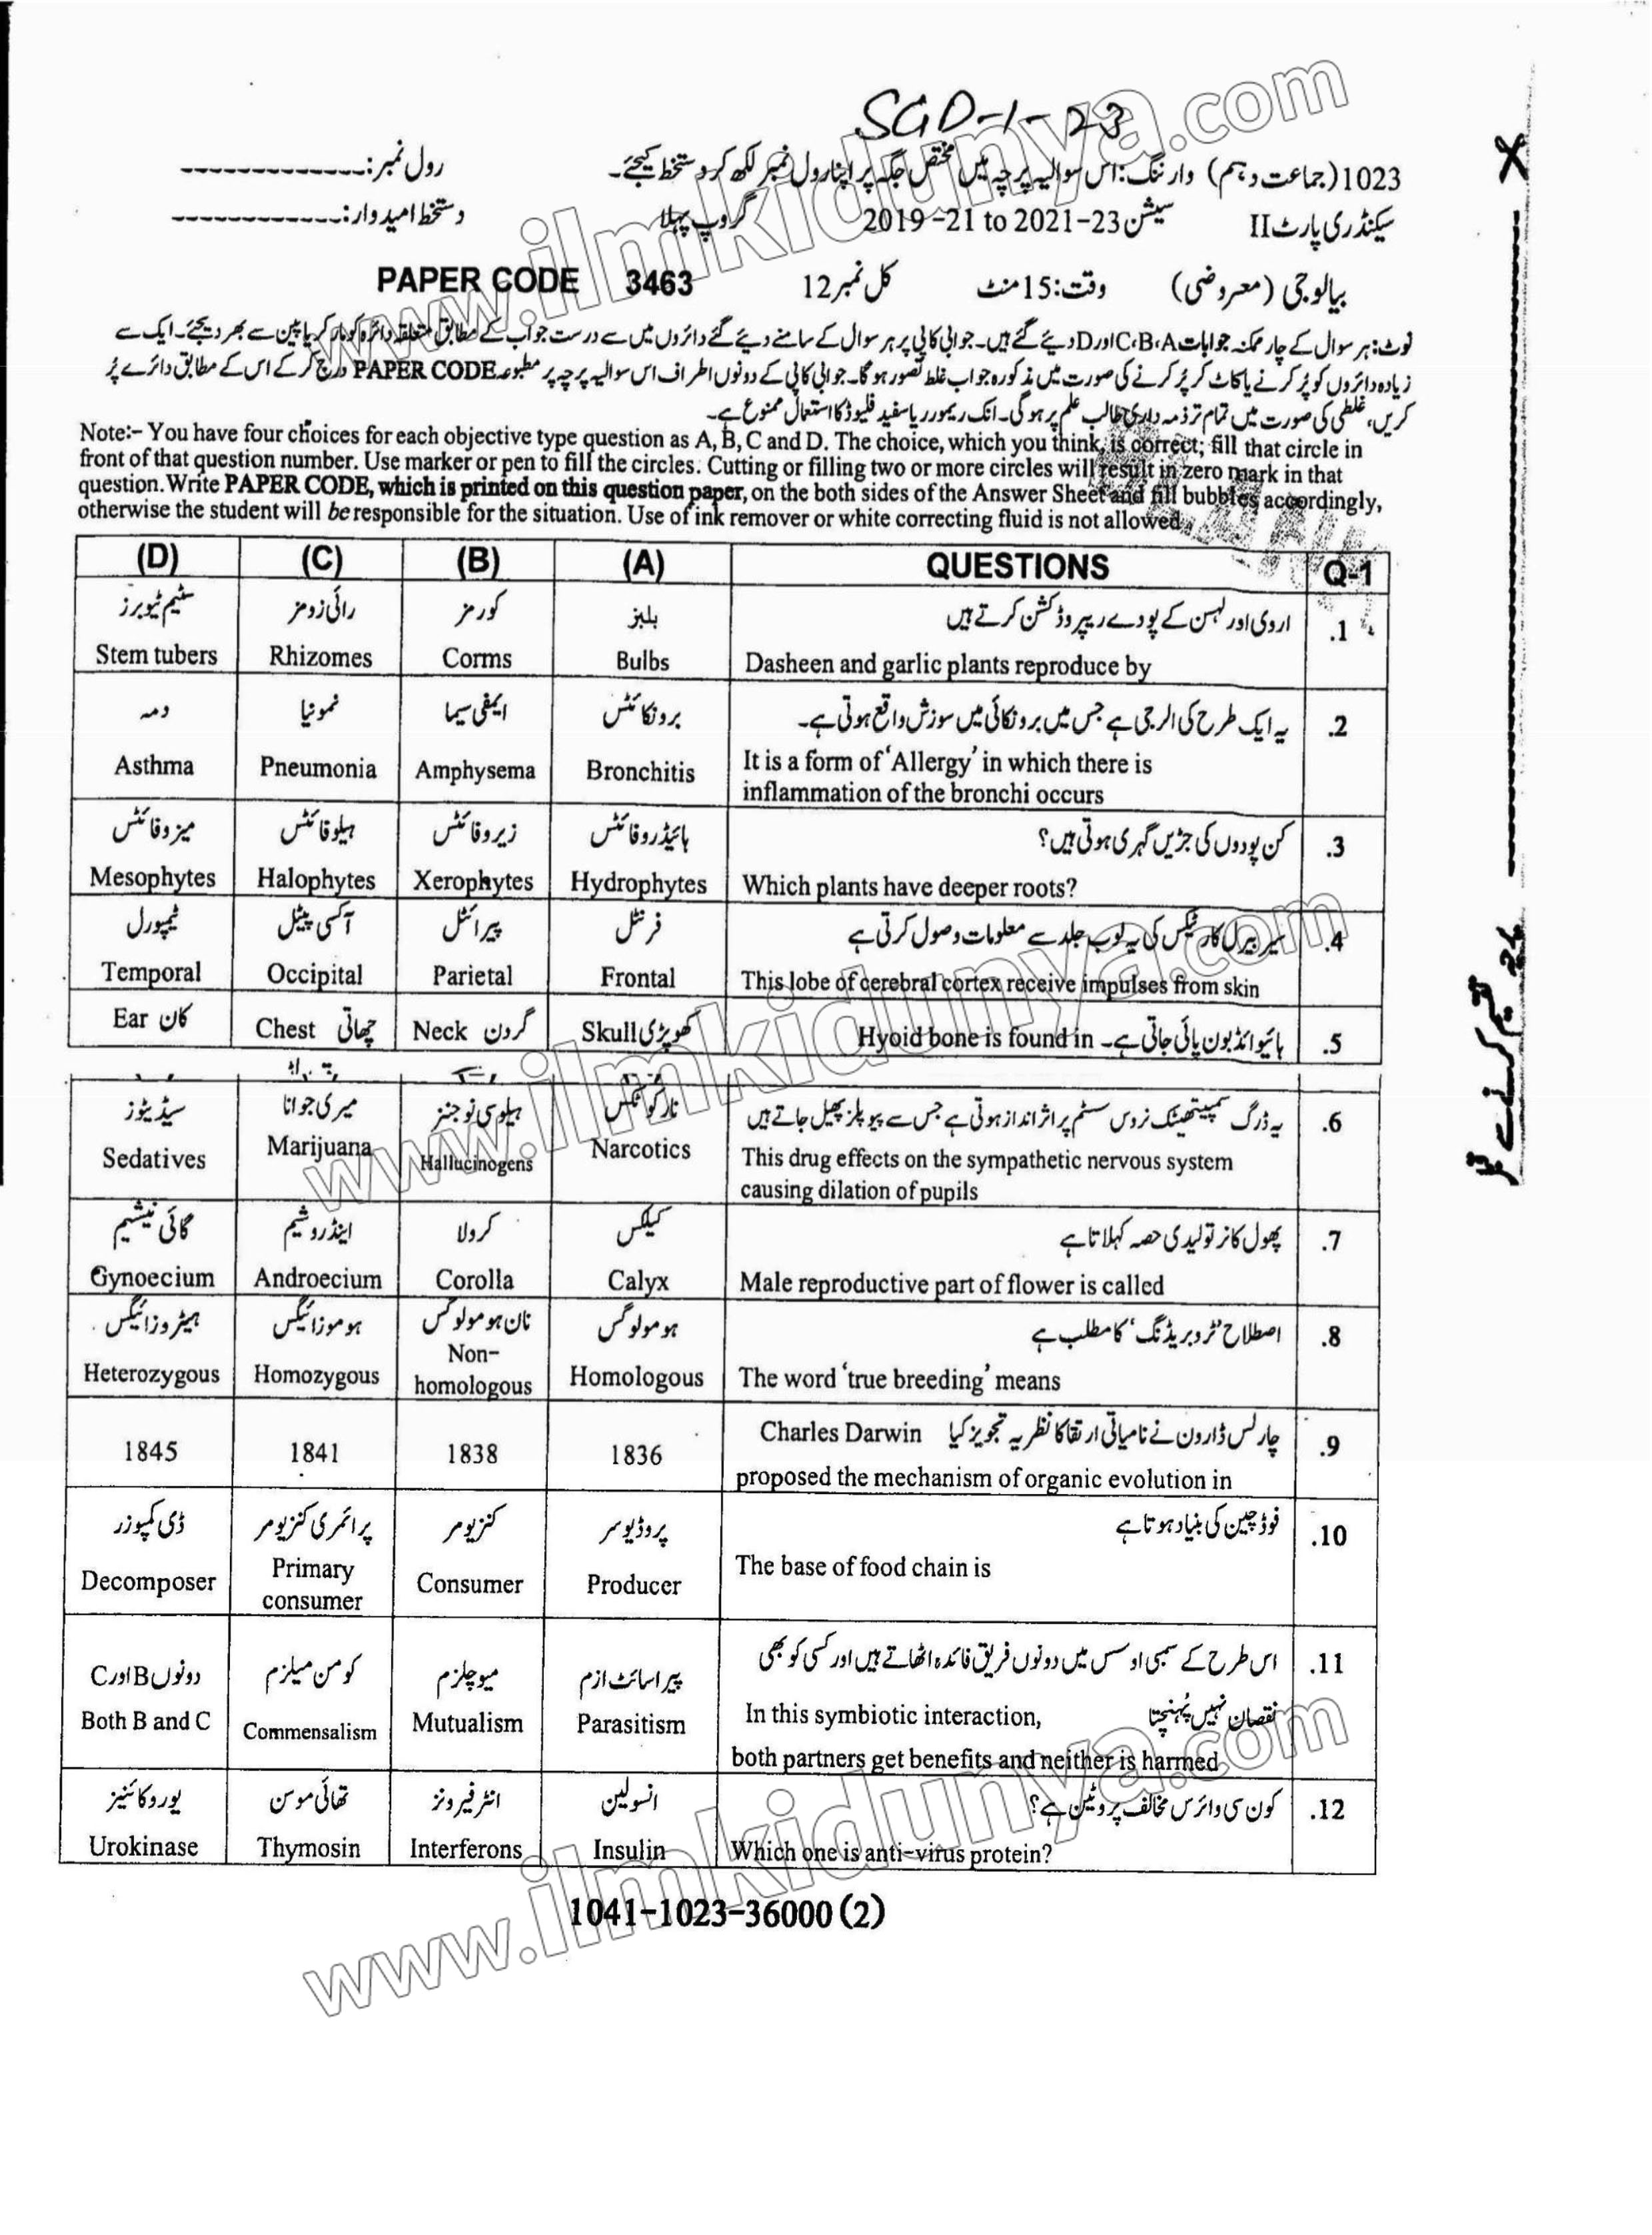 SGD-1-23
1023 (جماعت دہم) وارننگ: اس سوالیہ پرچہ میں مختص جگہ پر اپنا رول نمبر لکھ کر دستخط کیجئے۔ رول نمبر: -------------
سیکنڈری پارٹ II سیشن 2019-21 to 2021-23 گروپ پہلا دستخط امیدوار: ------------
بیالوجی (معروضی) وقت: 15 منٹ کل نمبر 12 PAPER CODE 3463
نوٹ: ہر سوال کے چار ممکنہ جوابات C،B،A اور D دیئے گئے ہیں۔ جوابی کاپی پر ہر سوال کے سامنے دیئے گئے دائروں میں سے درست جواب کے مطابق متعلقہ دائرہ کو مارکر یا پین سے بھر دیجئے۔ ایک سے
زیادہ دائروں کو پُر کرنے یا کاٹ کر پُر کرنے کی صورت میں مذکورہ جواب غلط تصور ہوگا۔ جوابی کاپی کے دونوں اطراف اس سوالیہ پرچہ پر مطبوعہ PAPER CODE درج کر کے اس کے مطابق دائرے پُر
کریں، غلطی کی صورت میں تمام تر ذمہ داری طالب علم پر ہوگی۔ انک ریموور یا سفید فلیوڈ کا استعمال ممنوع ہے۔
Note:- You have four choices for each objective type question as A, B, C and D. The choice, which you think is correct; fill that circle in
front of that question number. Use marker or pen to fill the circles. Cutting or filling two or more circles will result in zero mark in that
question. Write PAPER CODE, which is printed on this question paper, on the both sides of the Answer Sheet and fill bubbles accordingly,
otherwise the student will be responsible for the situation. Use of ink remover or white correcting fluid is not allowed.
(D) (C) (B) (A) QUESTIONS Q-1
سٹیم ٹیوبرز رائی زومز کورمز بلبز اروی اور لہسن کے پودے ریپروڈکشن کرتے ہیں .1
Stem tubers Rhizomes Corms Bulbs Dasheen and garlic plants reproduce by
دمہ نمونیا ایمفی سیما برونکائٹس یہ ایک طرح کی الرجی ہے جس میں برونکائی میں سوزش واقع ہوتی ہے۔ .2
Asthma Pneumonia Amphysema Bronchitis It is a form of 'Allergy' in which there is
inflammation of the bronchi occurs
میزوفائٹس ہیلوفائٹس زیروفائٹس ہائیڈروفائٹس کن پودوں کی جڑیں گہری ہوتی ہیں؟ .3
Mesophytes Halophytes Xerophytes Hydrophytes Which plants have deeper roots?
ٹیمپورل آکسی پیٹل پیرائٹل فرنٹل سیریبرل کارٹیکس کی یہ لوب جلد سے معلومات وصول کرتی ہے .4
Temporal Occipital Parietal Frontal This lobe of cerebral cortex receive impulses from skin
Ear کان Chest چھاتی Neck گردن Skull کھوپڑی Hyoid bone is found in ہائیوائڈ بون پائی جاتی ہے۔ .5
سیڈیٹوز میری جوانا ہیلوسی نوجنز نارکوٹکس یہ ڈرگ سمپیتھیٹک نروس سسٹم پر اثر انداز ہوتی ہے جس سے پیوپلز پھیل جاتے ہیں .6
Sedatives Marijuana Hallucinogens Narcotics This drug effects on the sympathetic nervous system
causing dilation of pupils
گائی نیشیم اینڈروشیم کرولا کیلکس پھول کا نر تولیدی حصہ کہلاتا ہے .7
Gynoecium Androecium Corolla Calyx Male reproductive part of flower is called
ہیٹروزائیگس ہوموزائیگس نان ہومولوگس ہومولوگس اصطلاح 'ٹرو بریڈنگ' کا مطلب ہے .8
Heterozygous Homozygous Non-homologous Homologous The word 'true breeding' means
Charles Darwin چارلس ڈارون نے نامیاتی ارتقا کا نظریہ تجویز کیا .9
1845 1841 1838 1836 proposed the mechanism of organic evolution in
ڈی کمپوزر پرائمری کنزیومر کنزیومر پروڈیوسر فوڈ چین کی بنیاد ہوتا ہے .10
Decomposer Primary consumer Consumer Producer The base of food chain is
دونوں B اور C کومن سیلزم میوچلزم پیراسائٹ ازم اس طرح کے سمبی اوسس میں دونوں فریق فائدہ اٹھاتے ہیں اور کسی کو بھی .11
نقصان نہیں پُہنچتا
Both B and C Commensalism Mutualism Parasitism In this symbiotic interaction,
both partners get benefits and neither is harmed
یوروکائنیز تھائی موسن انٹرفیرونز انسولین کون سی وائرس مخالف پروٹین ہے؟ .12
Urokinase Thymosin Interferons Insulin Which one is anti-virus protein?
1041-1023-36000 (2)
www.ilmkidunya.com
www.ilmkidunya.com
www.ilmkidunya.com